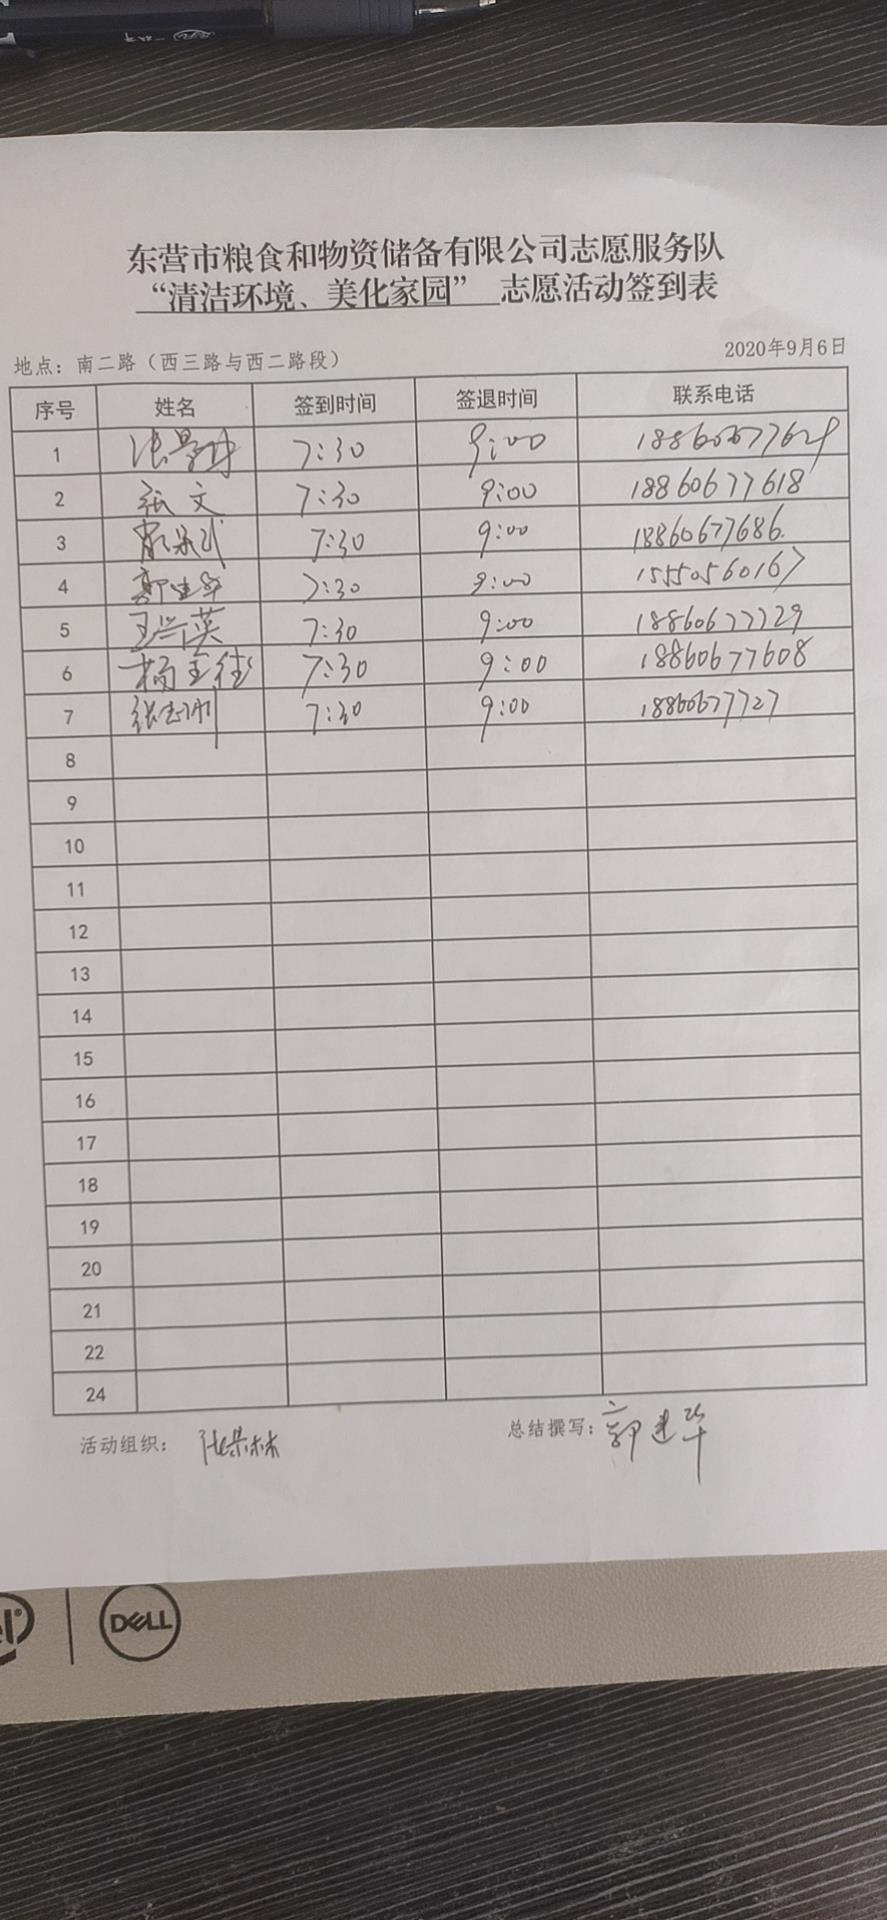 东营市粮食和物资储备有限公司志愿服务队
“清洁环境、美化家园” 志愿活动签到表
地点：南二路（西三路与西二路段） 2020年9月6日
序号 姓名 签到时间 签退时间 联系电话
1 7:30 9:00
2 张文 7:30 9:00 18860677618
3 7:30 9:00 18860677686
4 郭建华 7:30 9:00 15550560167
5 王兰英 7:30 9:00 18860677729
6 7:30 9:00 18860677608
7 7:30 9:00 18860677727
8
9
10
11
12
13
14
15
16
17
18
19
20
21
22
24
活动组织： 总结撰写：郭建华
DELL